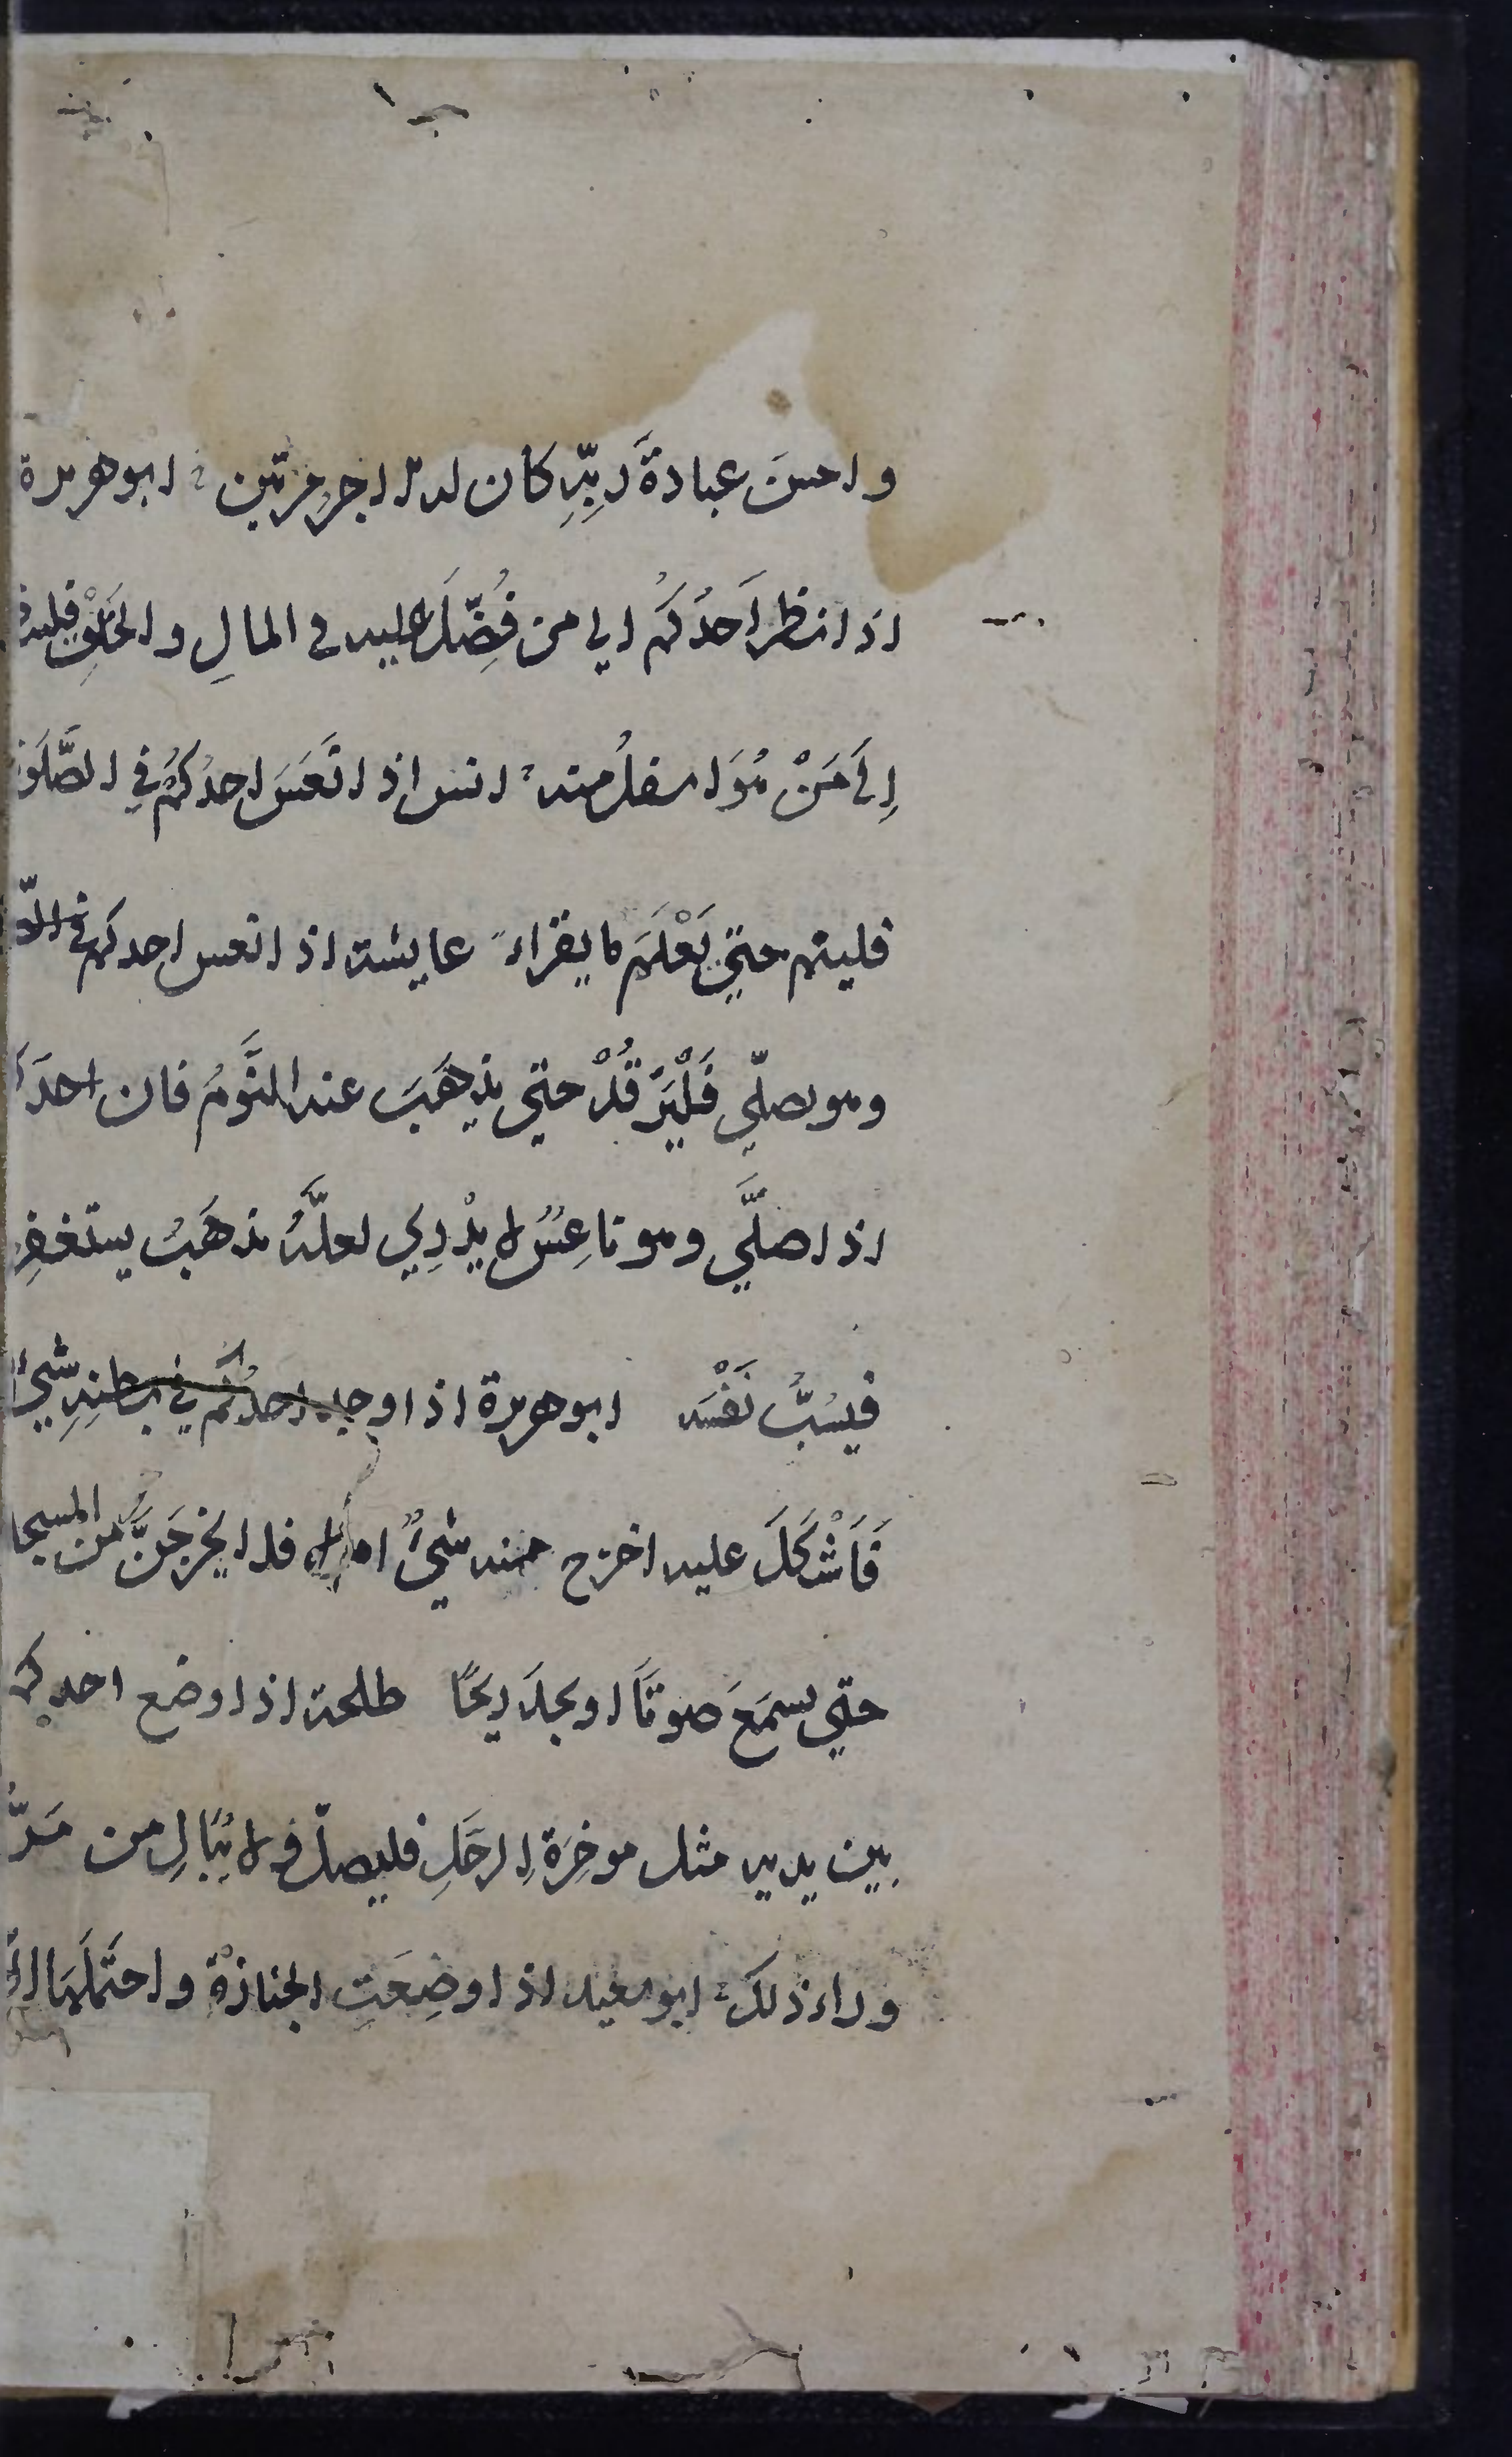 واحسنَ عبادةَ رَبِّهِ كان له اجر مرّتين ابو هريرة
اذا نظر اَحدُكُم الي من فُضِّلَ عليه في المالِ والخَلْقِ فلينظر
اِلَى مَنْ هُوَ اسفلُ منه انس اذا نَعَسَ احدُكُم في الصَّلَوة
فلينم حتي يَعْلَمَ ما يقراء عايشة اذا نعس احدكم
وهو يصلّي فَلْيَرْقُدْ حتي يذهَبَ عنه النَّومُ فان احدَكم
اذا صلَّي وهو ناعِسٌ لا يَدْرِي لعلَّهُ يذهَبُ يستغفِر
فيسُبُّ نَفْسَه ابو هريرة اذا وجد احدُكُم في بطنِهِ شيئًا
فَاَشْكَلَ عليه اخرج منه شيءٌ ام لا فلا يخرجَنَّ من المسجد
حتي يسمَعَ صوتًا او يجدَ ريحًا طلحة اذا وضع احدكم
بين يديه مثل موخِرَةِ الرحَلِ فليصلّ ولا يُبَالِ من مَرَّ
وراء ذلك ابو سعيد اذا وضِعَتِ الجنازةُ واحتَمَلَها